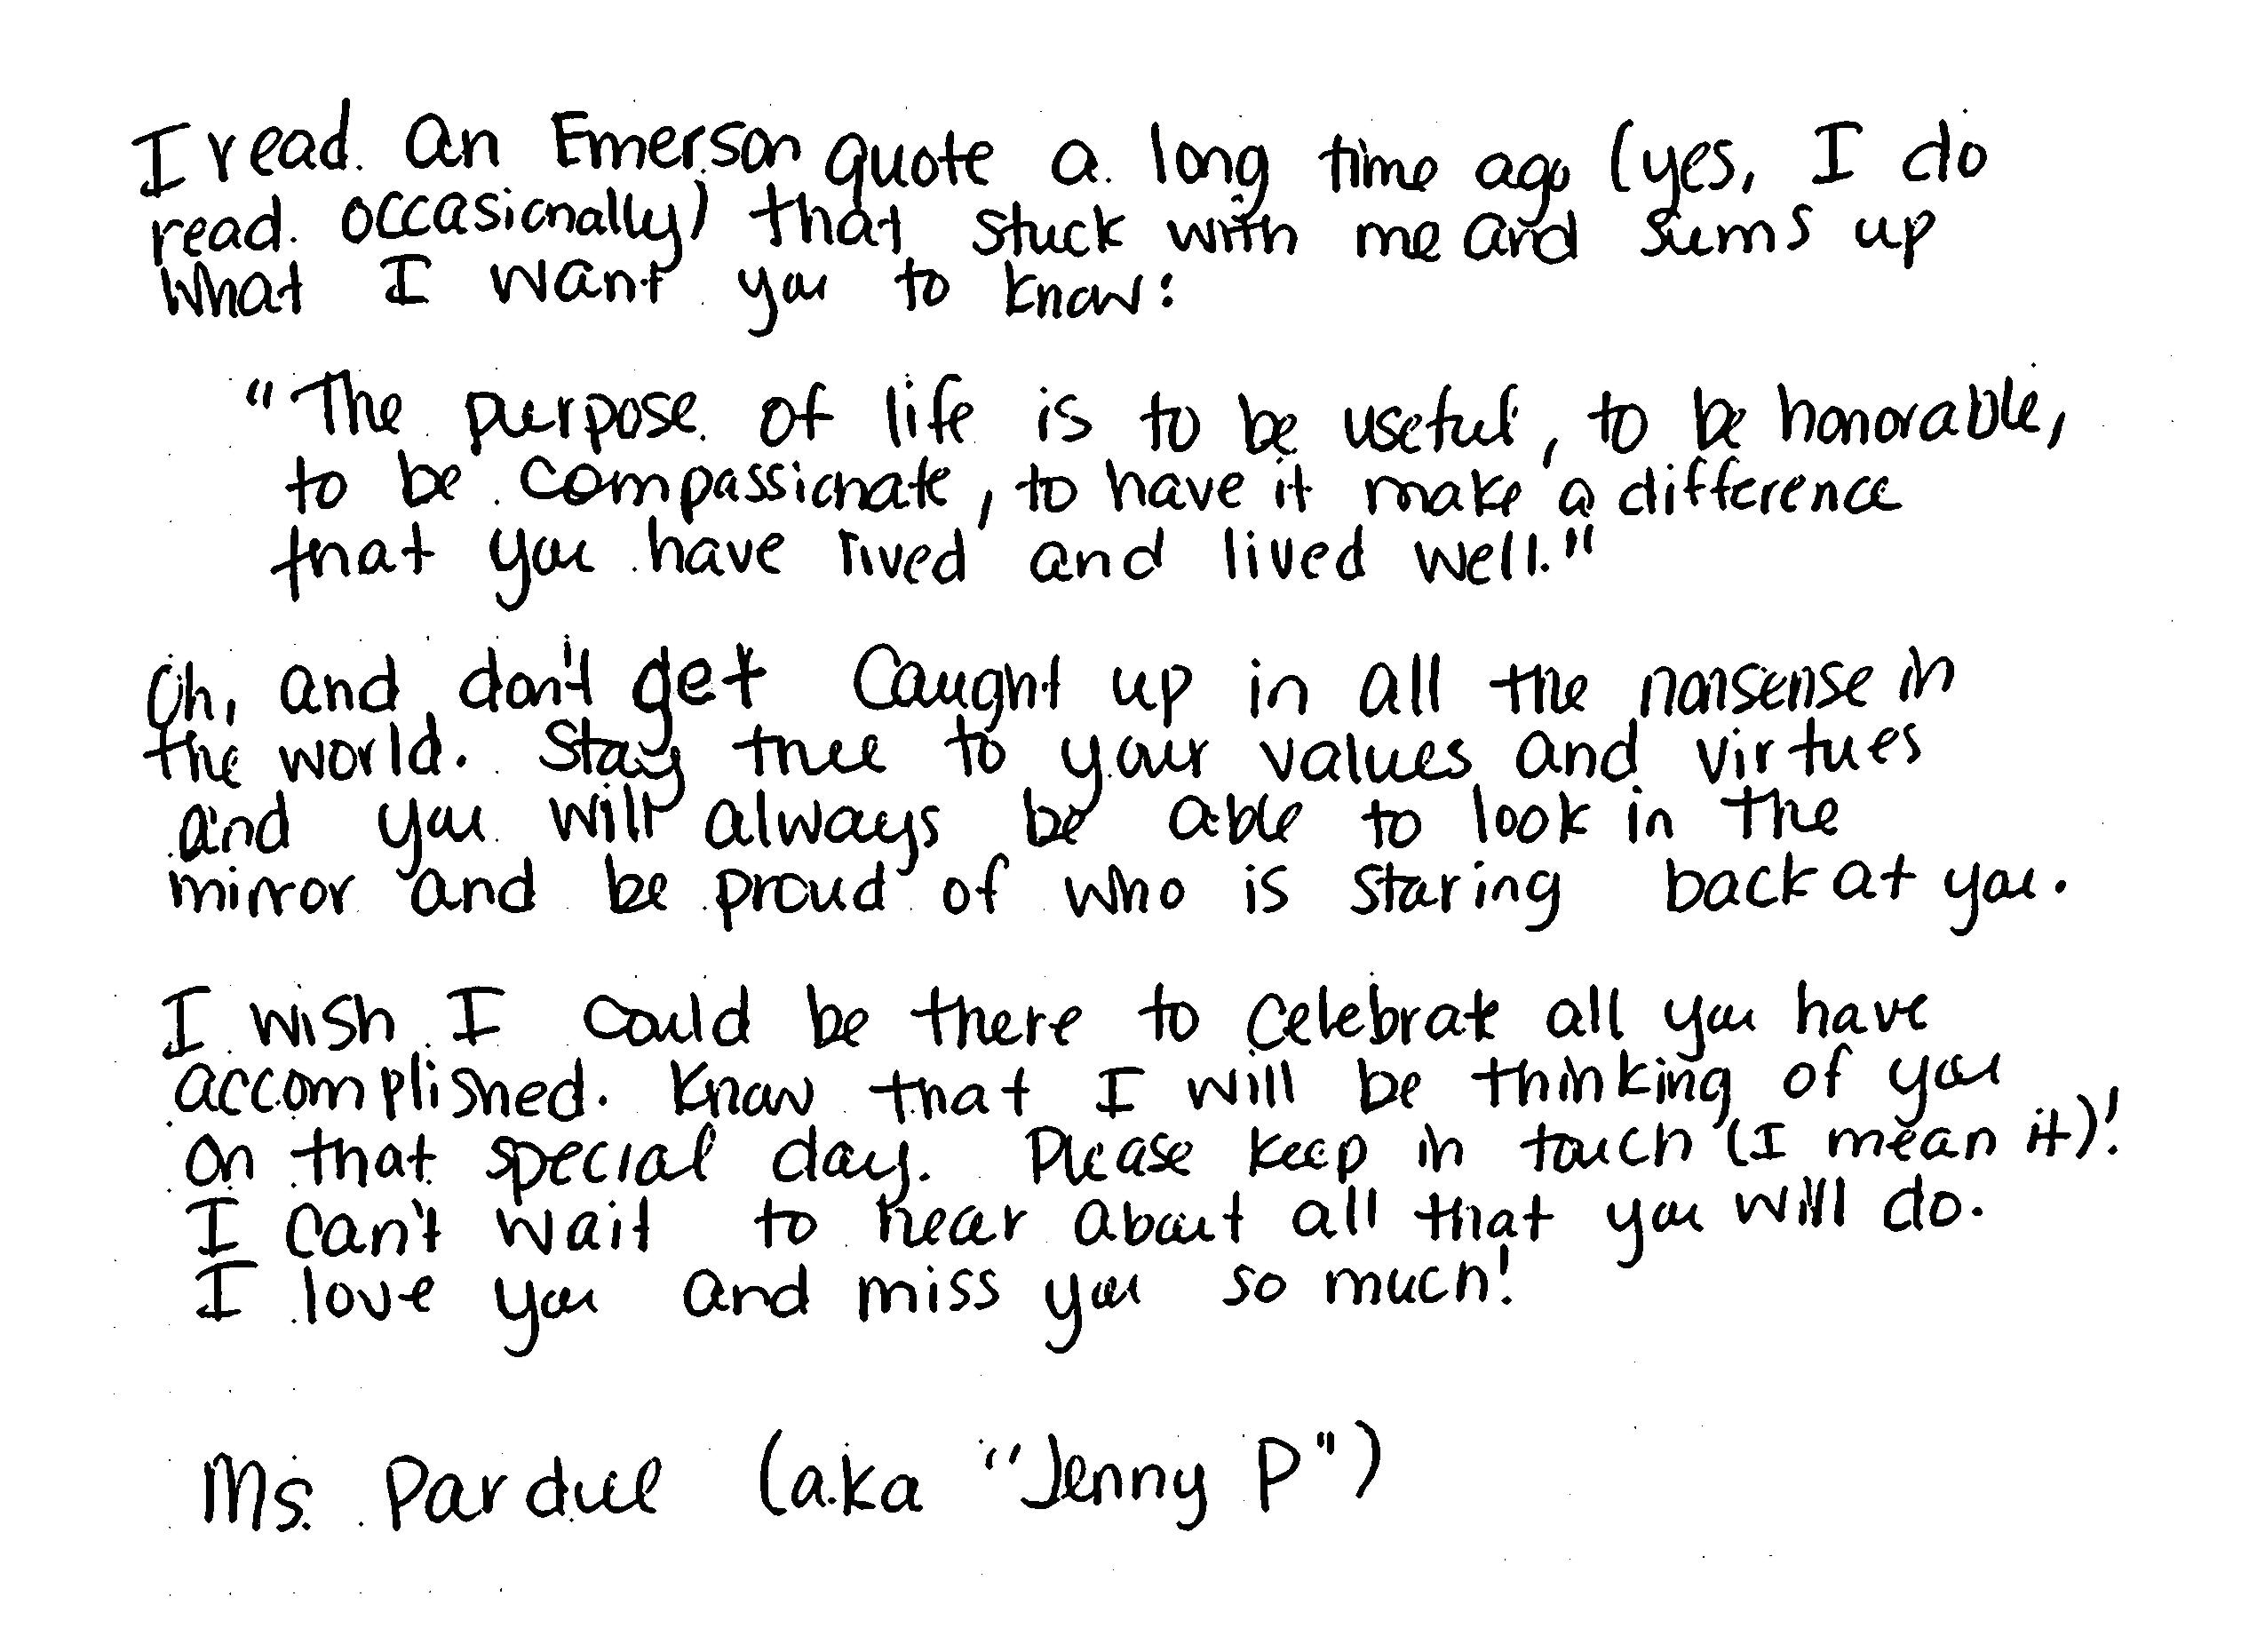 I read an Emerson quote a long time ago (yes, I do
read occasionally) that stuck with me and sums up
what I want you to know:
"The purpose of life is to be useful, to be honorable,
to be compassionate, to have it make a difference
that you have lived and lived well."
Oh, and don't get caught up in all the nonsense in
the world. Stay true to your values and virtues
and you will always be able to look in the
mirror and be proud of who is staring back at you.
I wish I could be there to celebrate all you have
accomplished. Know that I will be thinking of you
on that special day. Please keep in touch (I mean it)!
I can't wait to hear about all that you will do.
I love you and miss you so much!
Ms. Pardue (a.ka "Jenny P")